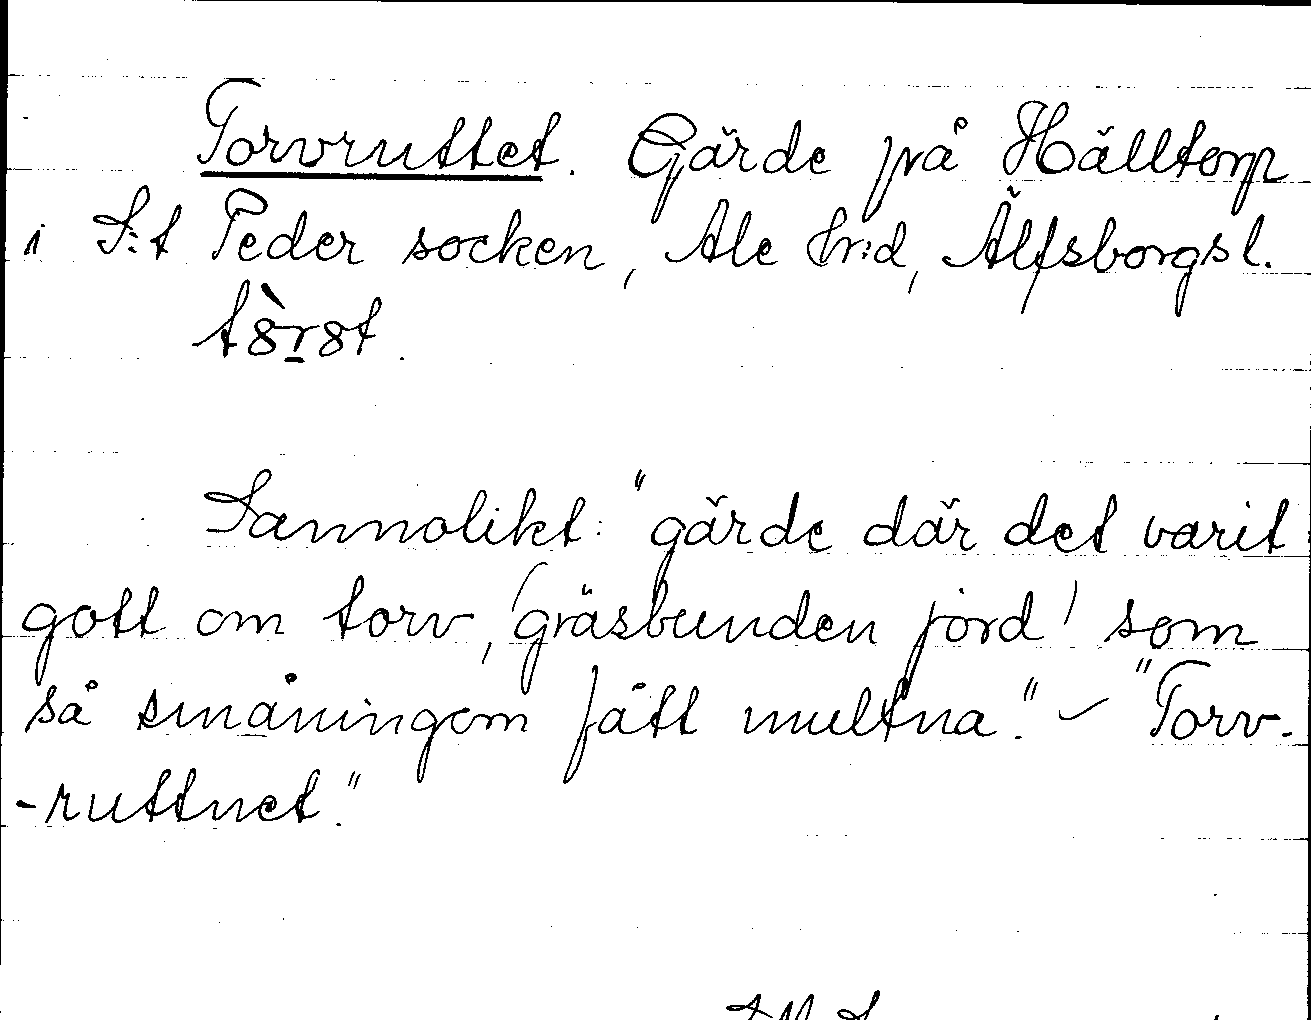 Torvruttet. Gärde på Hälltorp
i S:t Peder socken, Ale hrd, Älfsborgsl.
Sannolikt: "gärde där det varit
gott om torv, (gräsbunden jord) som
så småningom fått multna." – "Torv-
-ruttnet."